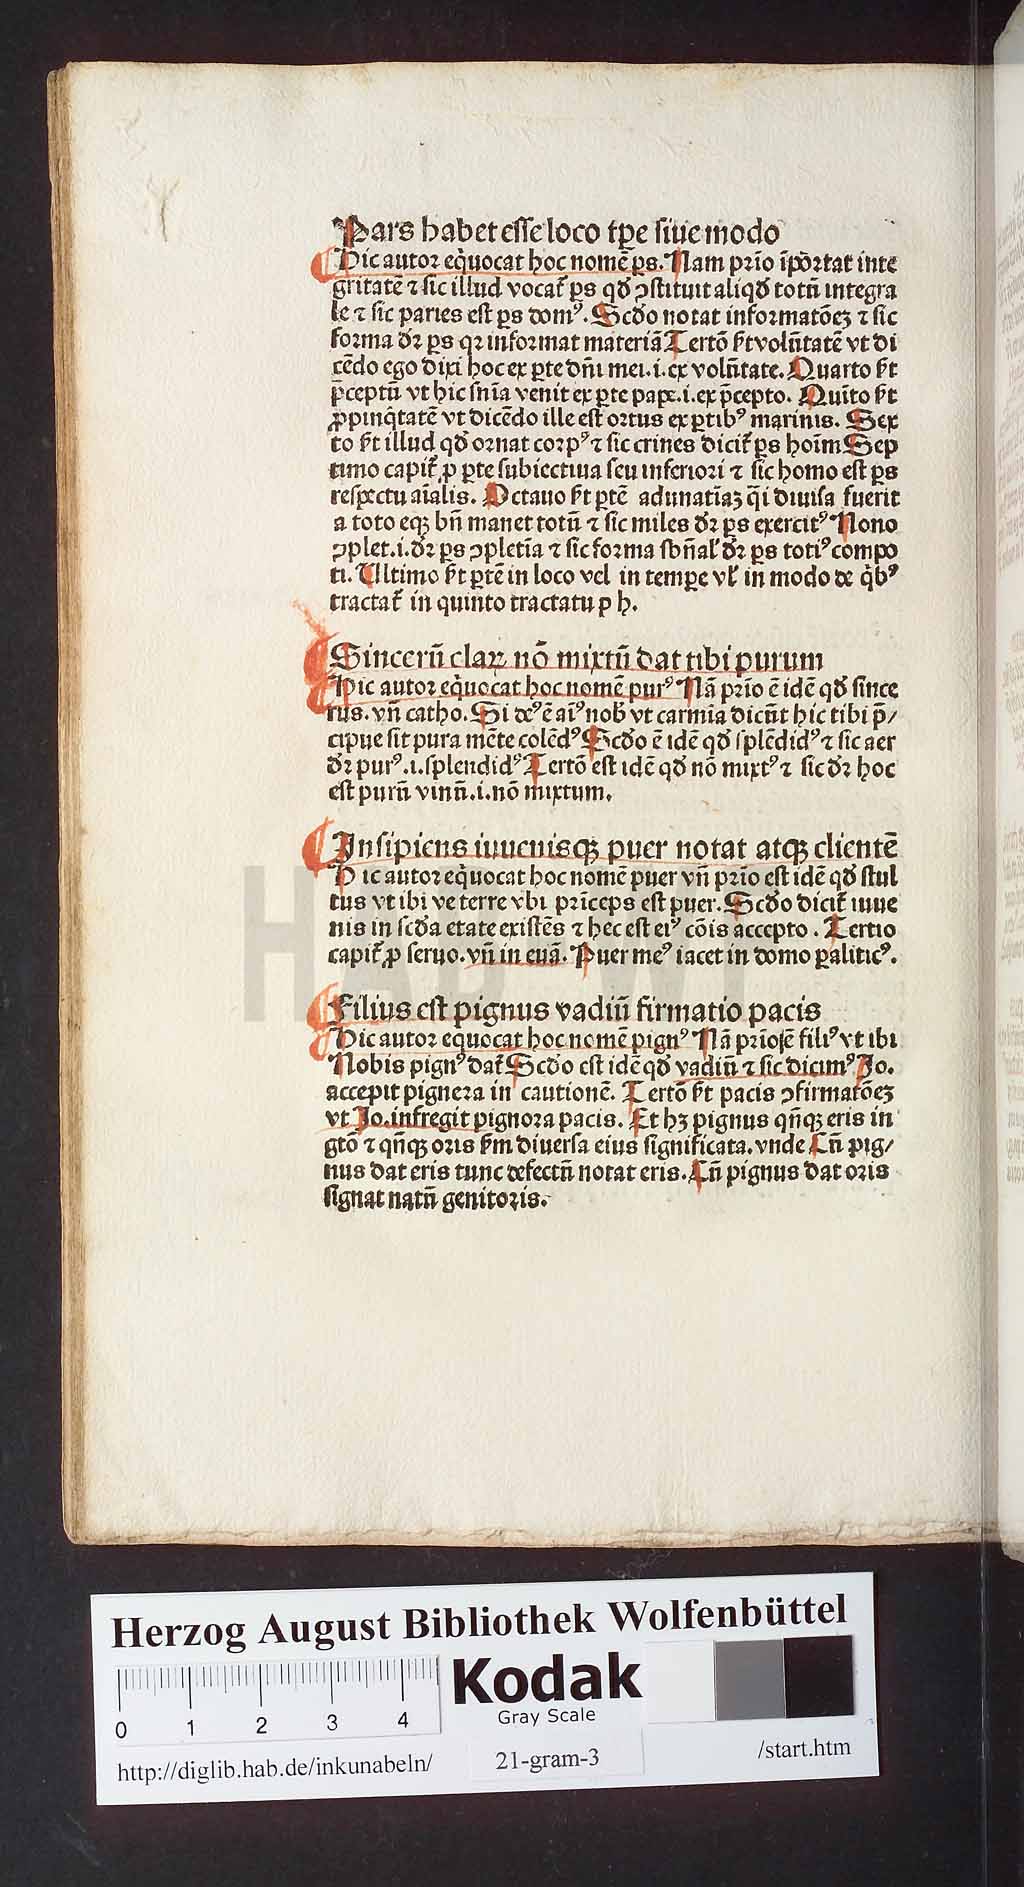 Pars habet esse loco tp̱e siue modo
Hic autor eq̇uocat hoc nomē ꝑs. Nam prīo īpōrtat inte
gritatē ⁊ sic illud vocat᷑ ꝑs qd̄ ꝯstituit aliqd̄ totū integra
le ⁊ sic paries est ꝑs domꝰ. Scd̄o notat informatōeꝫ ⁊ sic
forma dr̄ ꝑs qꝛ informat materiā Tertō ſt volūtatē vt di
cēdo ego dixi hoc ex ꝑte dn̄i mei .i. ex volūtate. Quarto ſt
p̄ceptū vt hic sn̄ia venit ex ꝑte pape .i. ex p̄cepto. Quīto ſt
ꝓpinq̇tatē vt dicēdo ille est ortus ex ꝑtibꝰ marinis. Sex
to ſt illud qd̄ ornat corpꝰ ⁊ sic crines dicit᷑ ꝑs hoīm Sep
timo capit᷑ ꝓ ꝑte subiectiua seu inferiori ⁊ sic homo est ꝑs
respectu aīalis. Octauo ſt ꝑtē adunatīaꝫ q̄i diuisa fuerit
a toto eqꝫ bn̄ manet totū ⁊ sic miles dr̄ ꝑs exercitꝰ Nono
ꝯplet .i. dr̄ ꝑs ꝯpletīa ⁊ sic forma sbn̄al᷑ dr̄ ꝑs totiꝰ compo
ti. Ultimo ſt ꝑtē in loco vel in temꝑe vl᷑ in modo de q̇bꝰ
tractat᷑ in quinto tractatu p h.
Sincerū clarꝫ nō mixtū dat tibi purum
Hic autor eq̇uocat hoc nomē purꝰ Nā prīo ē idē qd̄ since
rus. vn̄ catho. Si deꝰ ē aīꝰ nob̄ vt carmīa dicūt hic tibi p̄/
cipue sit pura mēte colēdꝰ Scd̄o ē idē qd̄ splēdidꝰ ⁊ sic aer
dr̄ purꝰ .i. splendidꝰ Tertō est idē qd̄ nō mixtꝰ ⁊ sic dr̄ hoc
est purū vinū .i. nō mixtum.
Insipiens iuuenisqꝫ puer notat atqꝫ clientē
Hic autor eq̇uocat hoc nomē puer vn̄ prīo est idē qd̄ stul
tus vt ibi ve terre vbi prīceps est puer. Scd̄o dicit᷑ iuue
nis in scd̄a etate existēs ⁊ hec est eiꝰ cōis acceptō. Tertio
capit᷑ ꝓ seruo. vn̄ in euā. Puer meꝰ iacet in domo ꝑaliticꝰ.
Filius est pignus vadiū firmatio pacis
Hic autor equocat hoc nomē pignꝰ Nā prīo ē filiꝰ vt ibi
Nobis pignꝰ dat᷑ Scd̄o est idē qd̄ vadiū ⁊ sic dicimꝰ Jo.
accepit pignera in cautionē. Tertō ſt pacis ꝯfirmatōeꝫ
vt Jo. infregit pignora pacis. Et hꝫ pignus qn̄qꝫ eris in
gtō ⁊ qn̄qꝫ oris ſm diuersa eius significata. vnde Cū pig/
nus dat eris tunc defectū notat eris. Cū pignus dat oris
signat natū genitoris.
Herzog August Bibliothek Wolfenbüttel
Kodak
Gray Scale
0 1 2 3 4
http://diglib.hab.de/inkunabeln/ 21-gram-3 /start.htm